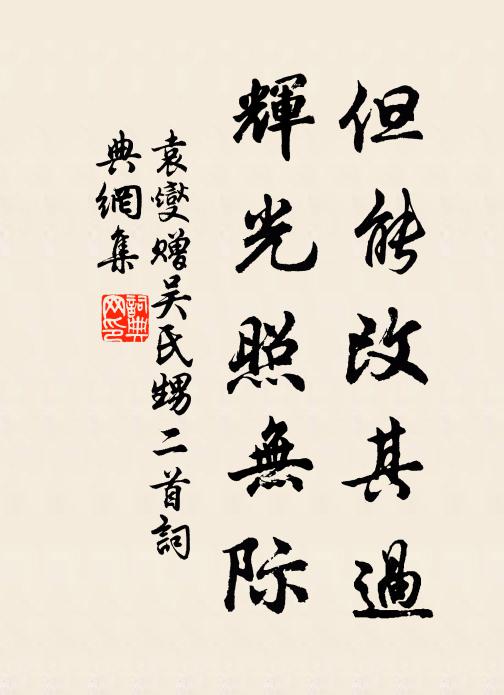 但能改其過
輝光照無际
袁燮赠吴氏甥二首詞
典網集
詞典
网印